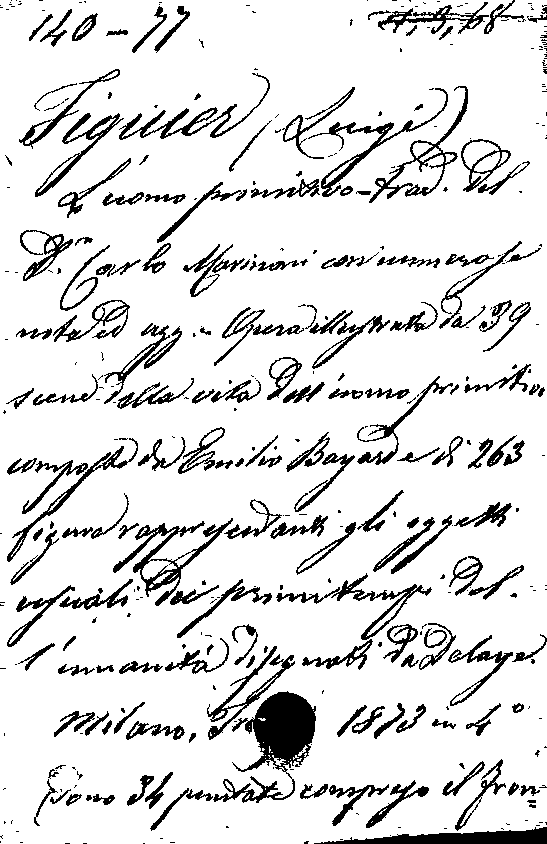 140-77 4,3,68
Figuier (Luigi)
L'uomo primitivo - Trad. del
Dr. Carlo Marinoni con numerose
note ed agg. - Opera illustrata da 39
scene della vita dell'uomo primitivo
composte da Emilio Bayard e di 263
figure rappresentanti gli oggetti
usuali dei primi tempi del-
l'umanità disegnati da Delaye.
Milano, 1873 in 4°
Sono 34 puntate compreso il fron=